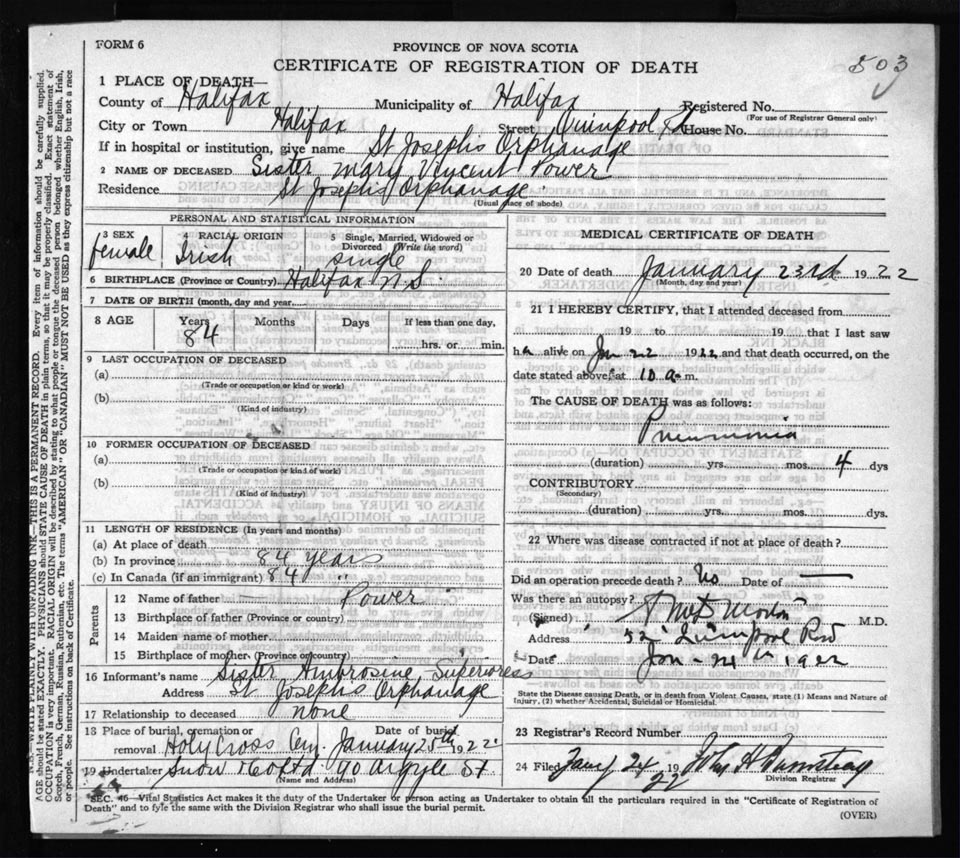 FORM 6
PROVINCE OF NOVA SCOTIA
CERTIFICATE OF REGISTRATION OF DEATH
503
1 PLACE OF DEATH—
County of Halifax Municipality of Halifax Registered No.
(For use of Registrar General only)
City or Town Halifax Street, Quinpool Rd House No.
If in hospital or institution, give name St Joseph's Orphanage
2 NAME OF DECEASED Sister Mary Vincent Power
Residence St Joseph's Orphanage
(Usual place of abode)
PERSONAL AND STATISTICAL INFORMATION
3 SEX female RACIAL ORIGIN Irish 5 Single, Married, Widowed or Divorced (Write the word) single
6 BIRTHPLACE (Province or Country) Halifax N.S.
7 DATE OF BIRTH (month, day and year)
8 AGE Years 84 Months Days If less than one day, hrs. or min.
9 LAST OCCUPATION OF DECEASED
(a)
(Trade or occupation or kind of work)
(b)
(Kind of industry)
10 FORMER OCCUPATION OF DECEASED
(a)
(Trade or occupation or kind of work)
(b)
(Kind of industry)
11 LENGTH OF RESIDENCE (In years and months)
(a) At place of death
(b) In province 84 years
(c) In Canada (if an immigrant) 84 "
Parents
12 Name of father Power
13 Birthplace of father (Province or country)
14 Maiden name of mother
15 Birthplace of mother (Province or country)
16 Informant's name Sister Ambrosine, Superioress
Address St Joseph's Orphanage
17 Relationship to deceased none
18 Place of burial, cremation or removal Holy Cross Cem. Date of burial January 25th 1922
19 Undertaker Snow & Co Ltd 90 Argyle St
(Name and Address)
MEDICAL CERTIFICATE OF DEATH
20 Date of death January 23rd 1922
(Month, day and year)
21 I HEREBY CERTIFY, that I attended deceased from
19 to 19 that I last saw
h alive on Jan 22 1922 and that death occurred, on the
date stated above, at 10 a m.
The CAUSE OF DEATH was as follows:
Pneumonia
(duration) yrs. mos. 4 dys
CONTRIBUTORY
(Secondary)
(duration) yrs. mos. dys.
22 Where was disease contracted if not at place of death?
Did an operation precede death? No Date of —
Was there an autopsy?
(Signed) M.D.
Address 52 Quinpool Road
Date Jan - 24th 1922
State the Disease causing Death, or in death from Violent. Causes, state (1) Means and Nature of
Injury, (2) whether Accidental, Suicidal or Homicidal.
23 Registrar's Record Number
24 Filed Jany 24 1922
Division Registrar
SEC. 46—Vital Statistics Act makes it the duty of the Undertaker or person acting as Undertaker to obtain all the particulars required in the "Certificate of Registration of
Death" and to fyle the same with the Division Registrar who shall issue the burial permit.
(OVER)
N.B.—WRITE PLAINLY WITH UNFADING INK—THIS IS A PERMANENT RECORD. Every item of information should be carefully supplied.
AGE should be stated EXACTLY. PHYSICIANS should STATE CAUSE OF DEATH in plain terms, so that it may be properly classified. Exact statement of
OCCUPATION is very important. RACIAL ORIGIN will be described by stating to what people or tongue the deceased person belonged whether English, Irish,
Scotch, French, German, Russian, Ruthenian, etc. The terms "AMERICAN" OR "CANADIAN" MUST NOT BE USED as they express citizenship but not a race
or people. See instructions on back of Certificate.